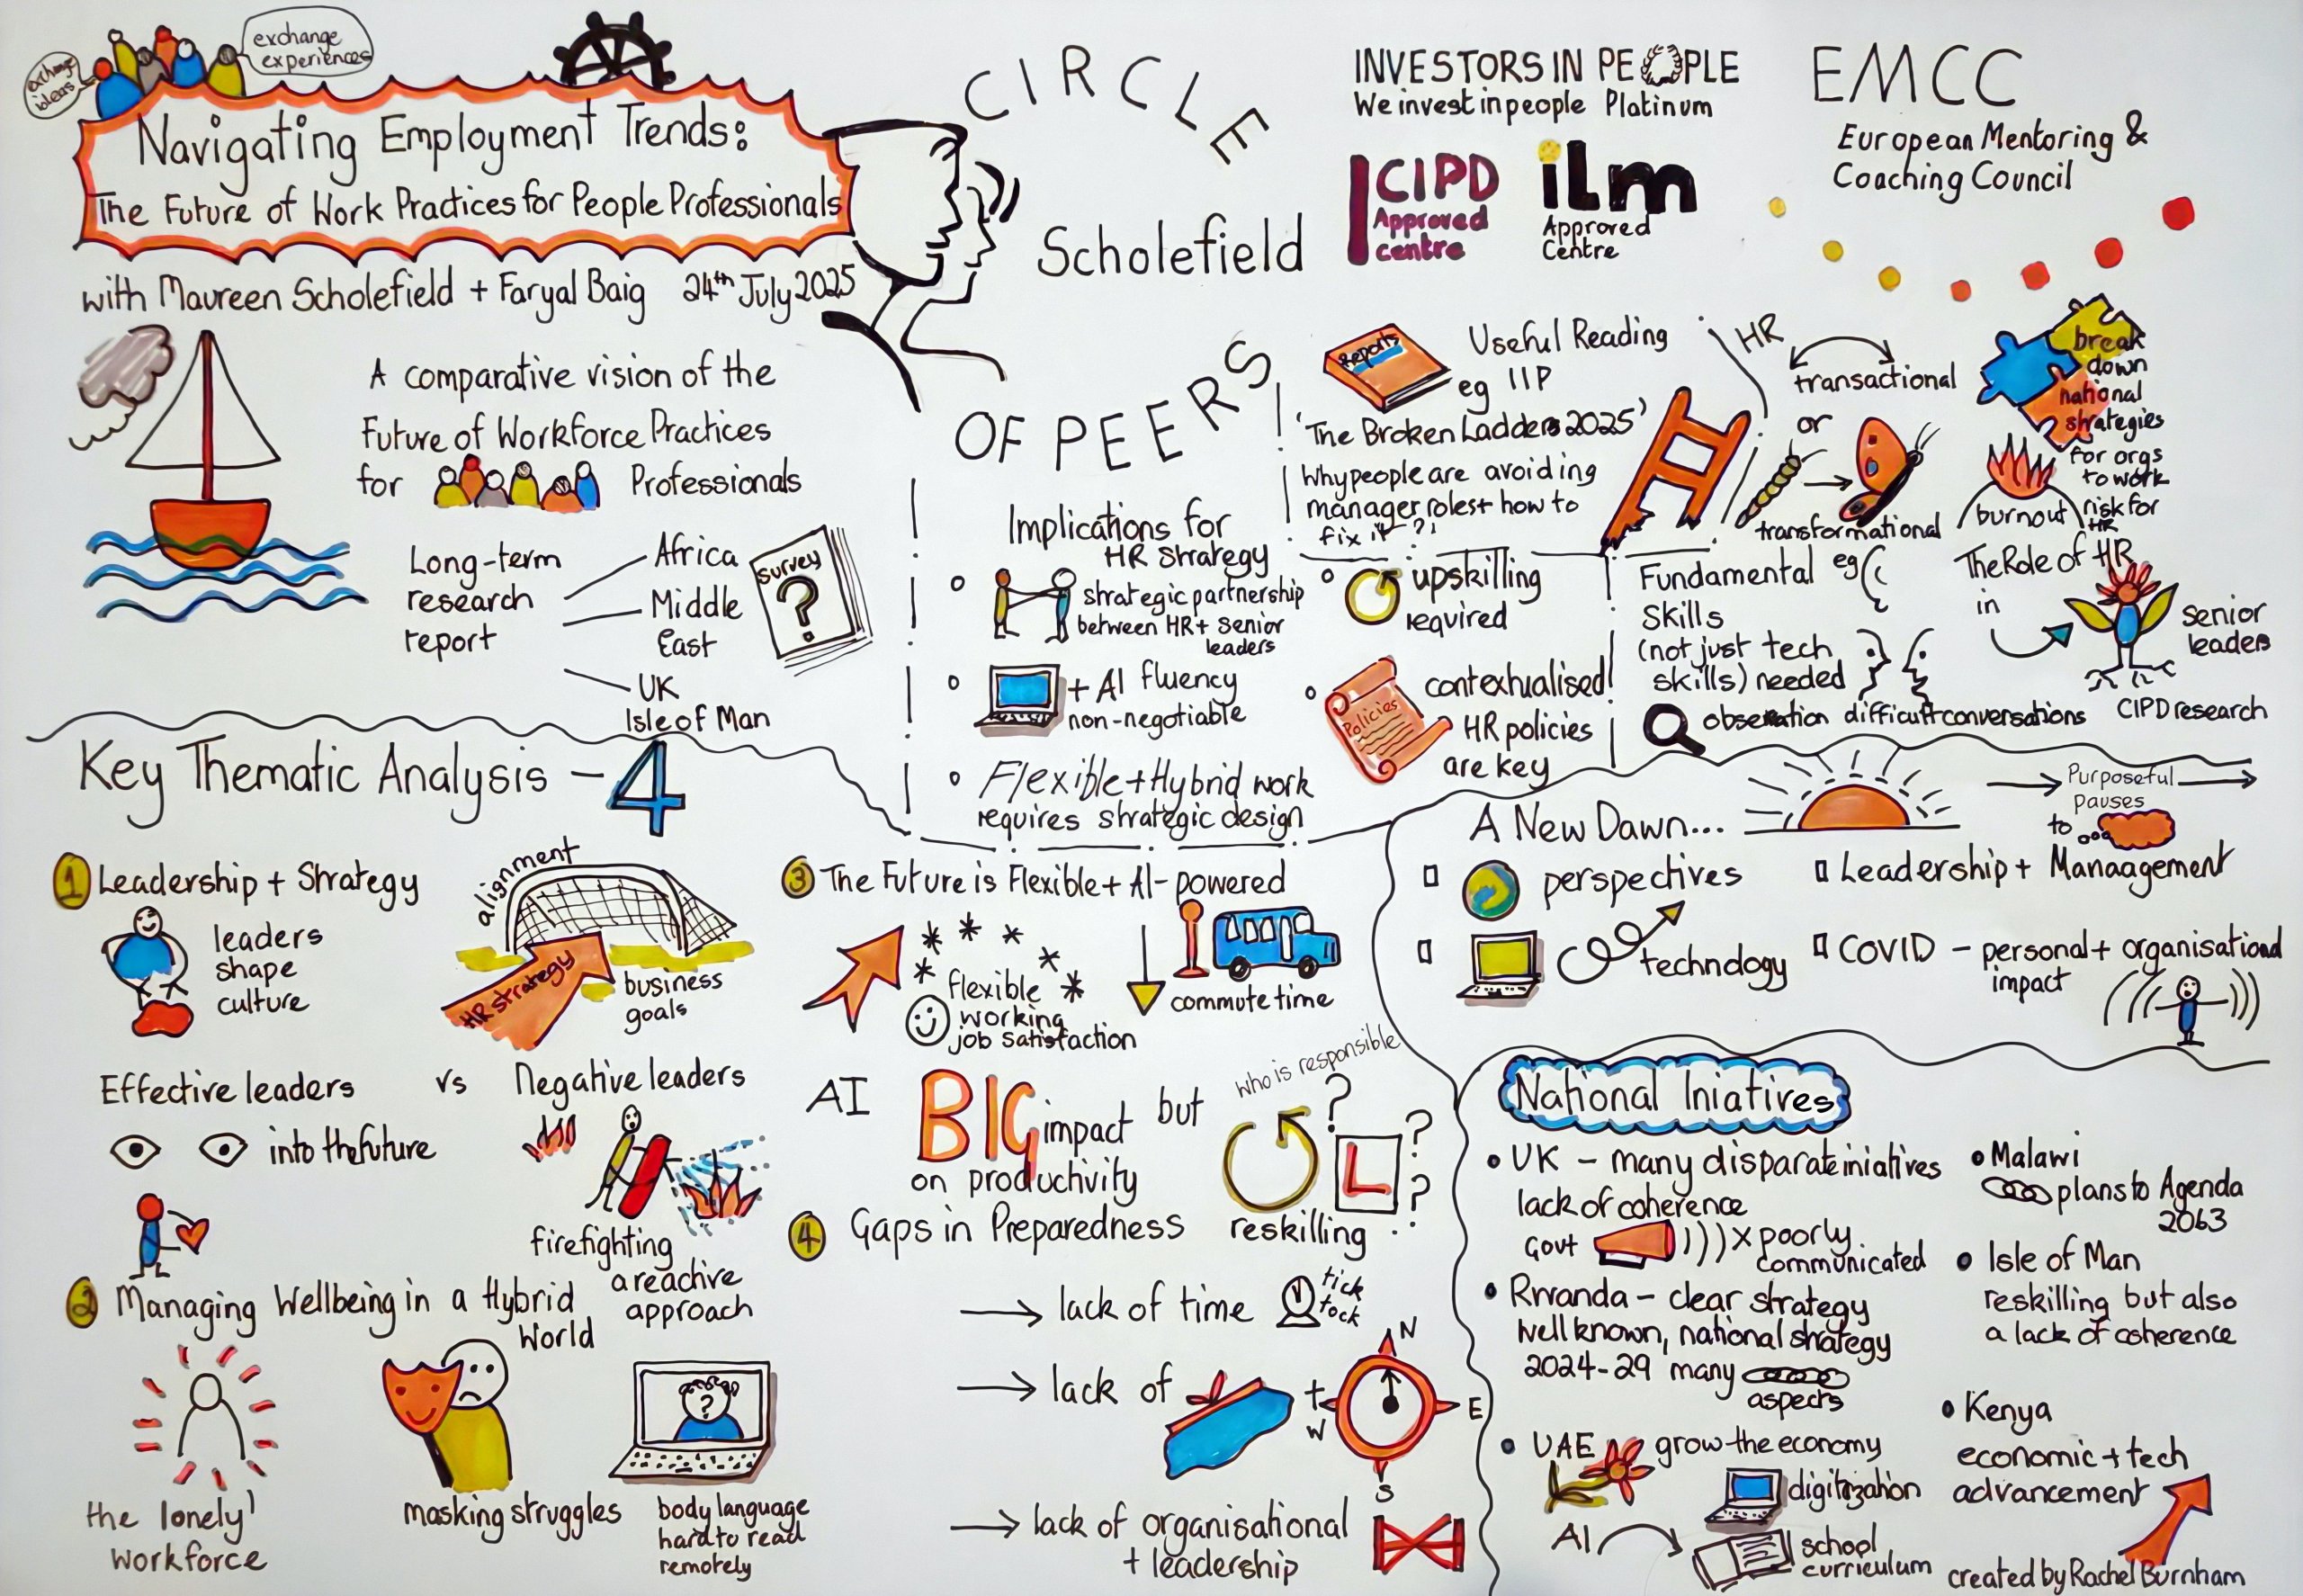 exchange
ideas
exchange
experiences
Navigating Employment Trends:
The Future of Work Practices for People Professionals
with Maureen Scholefield + Faryal Baig 24th July 2025
CIRCLE
Scholefield
OF PEERS
INVESTORS IN PEOPLE
We invest in people Platinum
CIPD
Approved
centre
ilm
Approved
Centre
EMCC
European Mentoring &
Coaching Council
A comparative vision of the
Future of Workforce Practices
for Professionals
Long-term
research
report
Africa
Middle
East
UK
Isle of Man
Survey
?
Implications for
HR Strategy
strategic partnership
between HR + senior
leaders
+ AI fluency
non-negotiable
Flexible + Hybrid work
requires strategic design
upskilling
required
Policies
contextualised
HR policies
are key
Reports
Useful Reading
eg IIP
'The Broken Ladders 2025'
Why people are avoiding
manager roles + how to
fix it ?!
HR
transactional
or
transformational
break
down
national
strategies
for orgs
to work
burnout
risk for
HR
Fundamental eg
Skills
(not just tech
skills) needed
observation difficult conversations
The Role of HR
in
senior
leaders
CIPD research
Key Thematic Analysis - 4
1 Leadership + Strategy
leaders
shape
culture
alignment
HR strategy
business
goals
Effective leaders vs Negative leaders
into the future
firefighting
a reactive
approach
2 Managing Wellbeing in a Hybrid
World
the lonely
workforce
masking struggles
?
body language
hard to read
remotely
3 The Future is Flexible + AI-powered
flexible
working
job satisfaction
commute time
AI BIG impact but
on productivity
who is responsible
?
?
?
L
reskilling
4 Gaps in Preparedness
lack of time
tick
tock
lack of
N
E
S
W
lack of organisational
+ leadership
A New Dawn...
Purposeful
pauses
to
perspectives
technology
Leadership + Manaagement
COVID - personal + organisational
impact
National Iniatives
UK - many disparate iniatives
lack of coherence
Govt x poorly
communicated
Rwanda - clear strategy
well known, national strategy
2024-29 many
aspects
UAE grow the economy
digitization
AI
school
curriculum
Malawi
plans to Agenda
2063
Isle of Man
reskilling but also
a lack of coherence
Kenya
economic + tech
advancement
created by Rachel Burnham